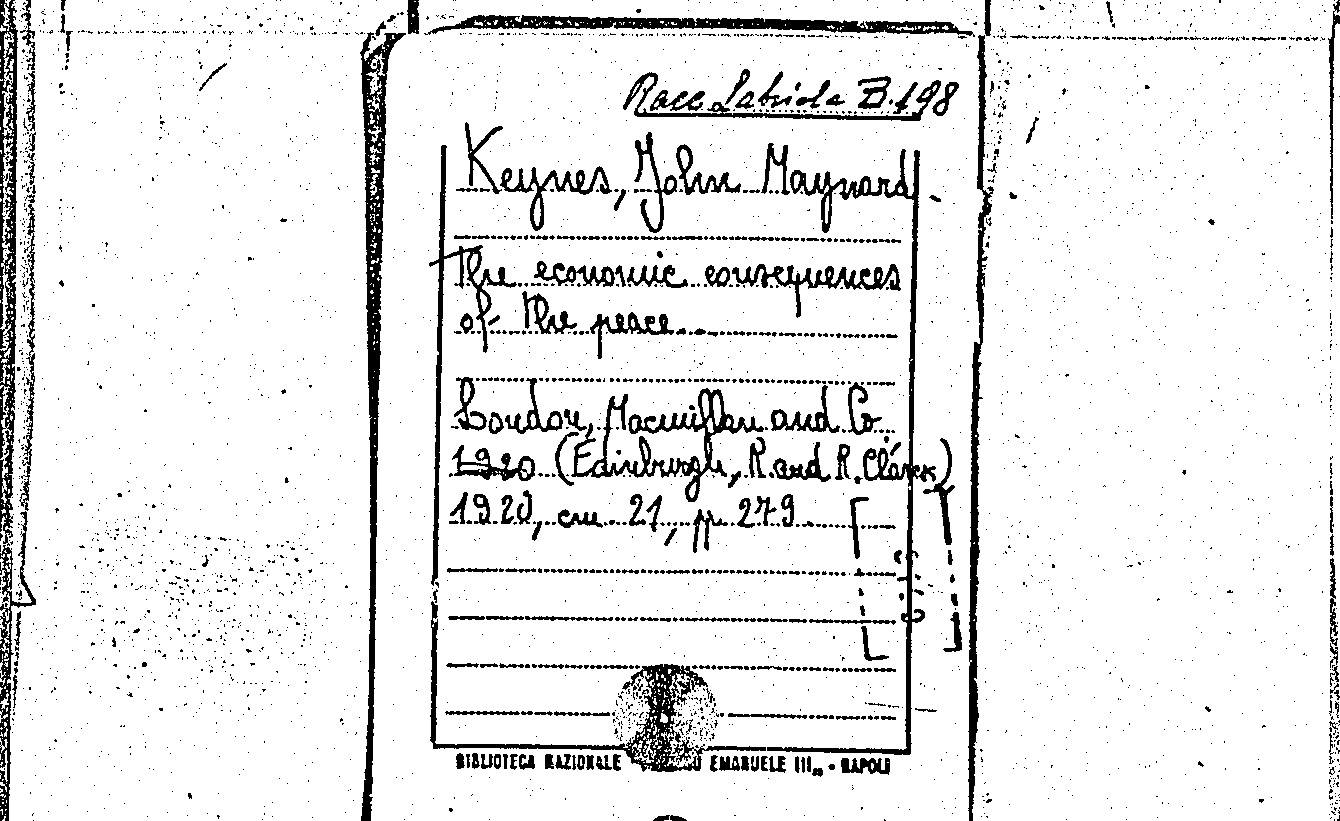 Racc. Labriola B.198
Keynes, John Maynard.
The economic consequences
of the peace...
London, Macmillan and Co.
1920 (Edinburgh, R. and R. Clarck)
1920, cm. 21, pp. 279.
BIBLIOTECA NAZIONALE EMANUELE III„ - NAPOLI